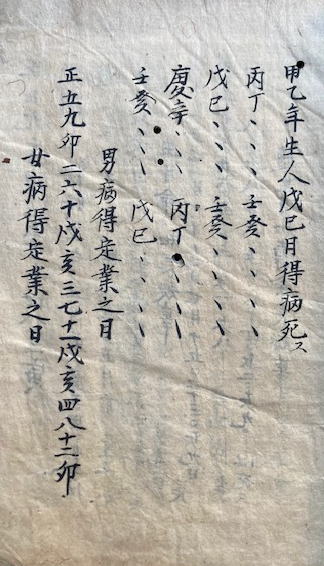 甲乙年生人戊巳日得病死ス
丙丁、、、壬癸、、、、
戊巳、、、壬癸、、、、
庚辛、、、丙丁、、、、
壬癸、、、戊巳、、、、
男病得定業之日
正五九卯二六十戌亥三七十一戌亥四八十二卯
女病得定業之日